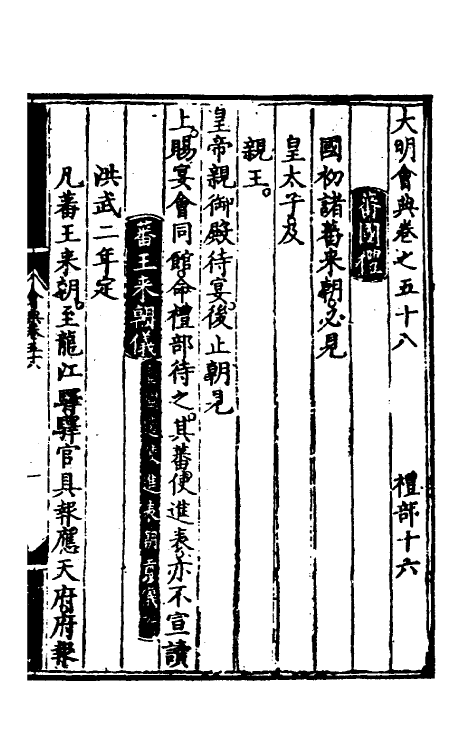 大明會典卷之五十八　禮部十六
蕃國禮
國初諸蕃來朝。必見
皇太子及
親王。
皇帝親御殿待宴。後止朝見
上。賜宴會同館。命禮部待之。其蕃使進表。亦不宣讀
蕃王來朝儀　進表
洪武二年定
凡蕃王來朝。至龍江驛。驛官具報應天府。府報